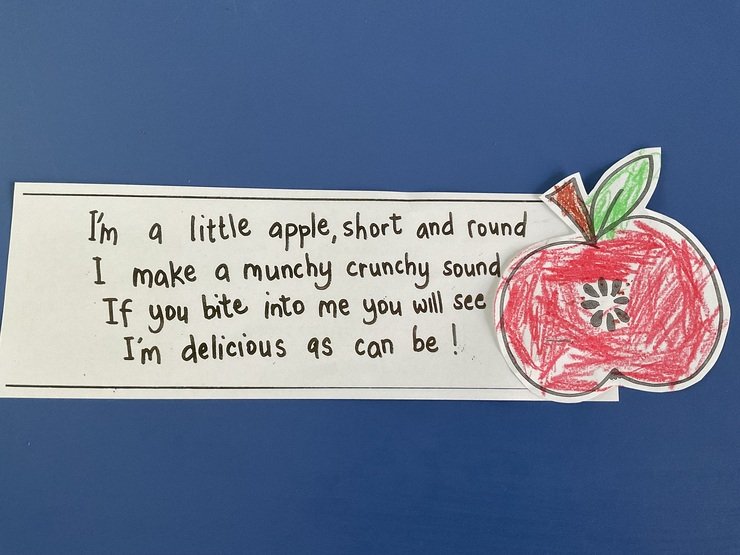 I'm a little apple, short and round
I make a munchy crunchy sound
If you bite into me you will see
I'm delicious as can be!